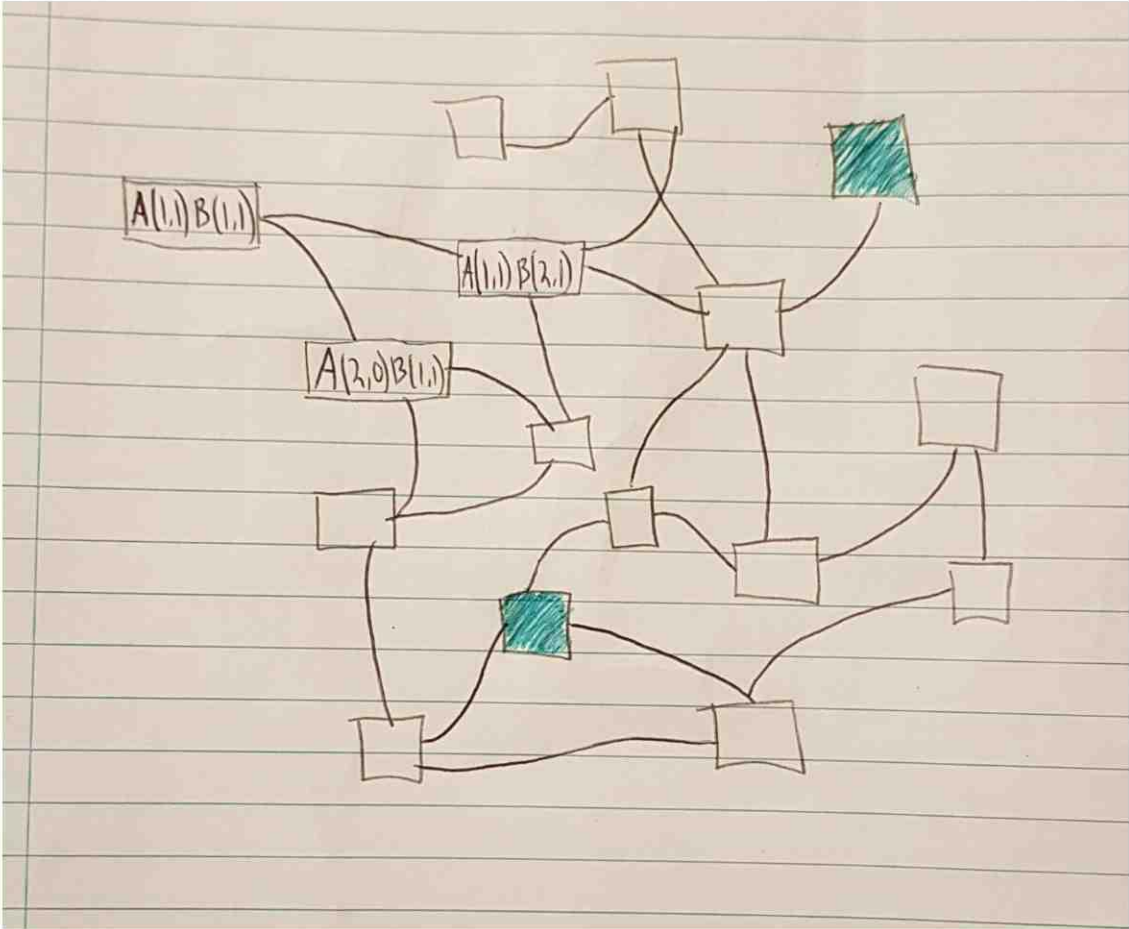 A(1,1)B(1,1)
A(1,1)B(2,1)
A(2,0)B(1,1)